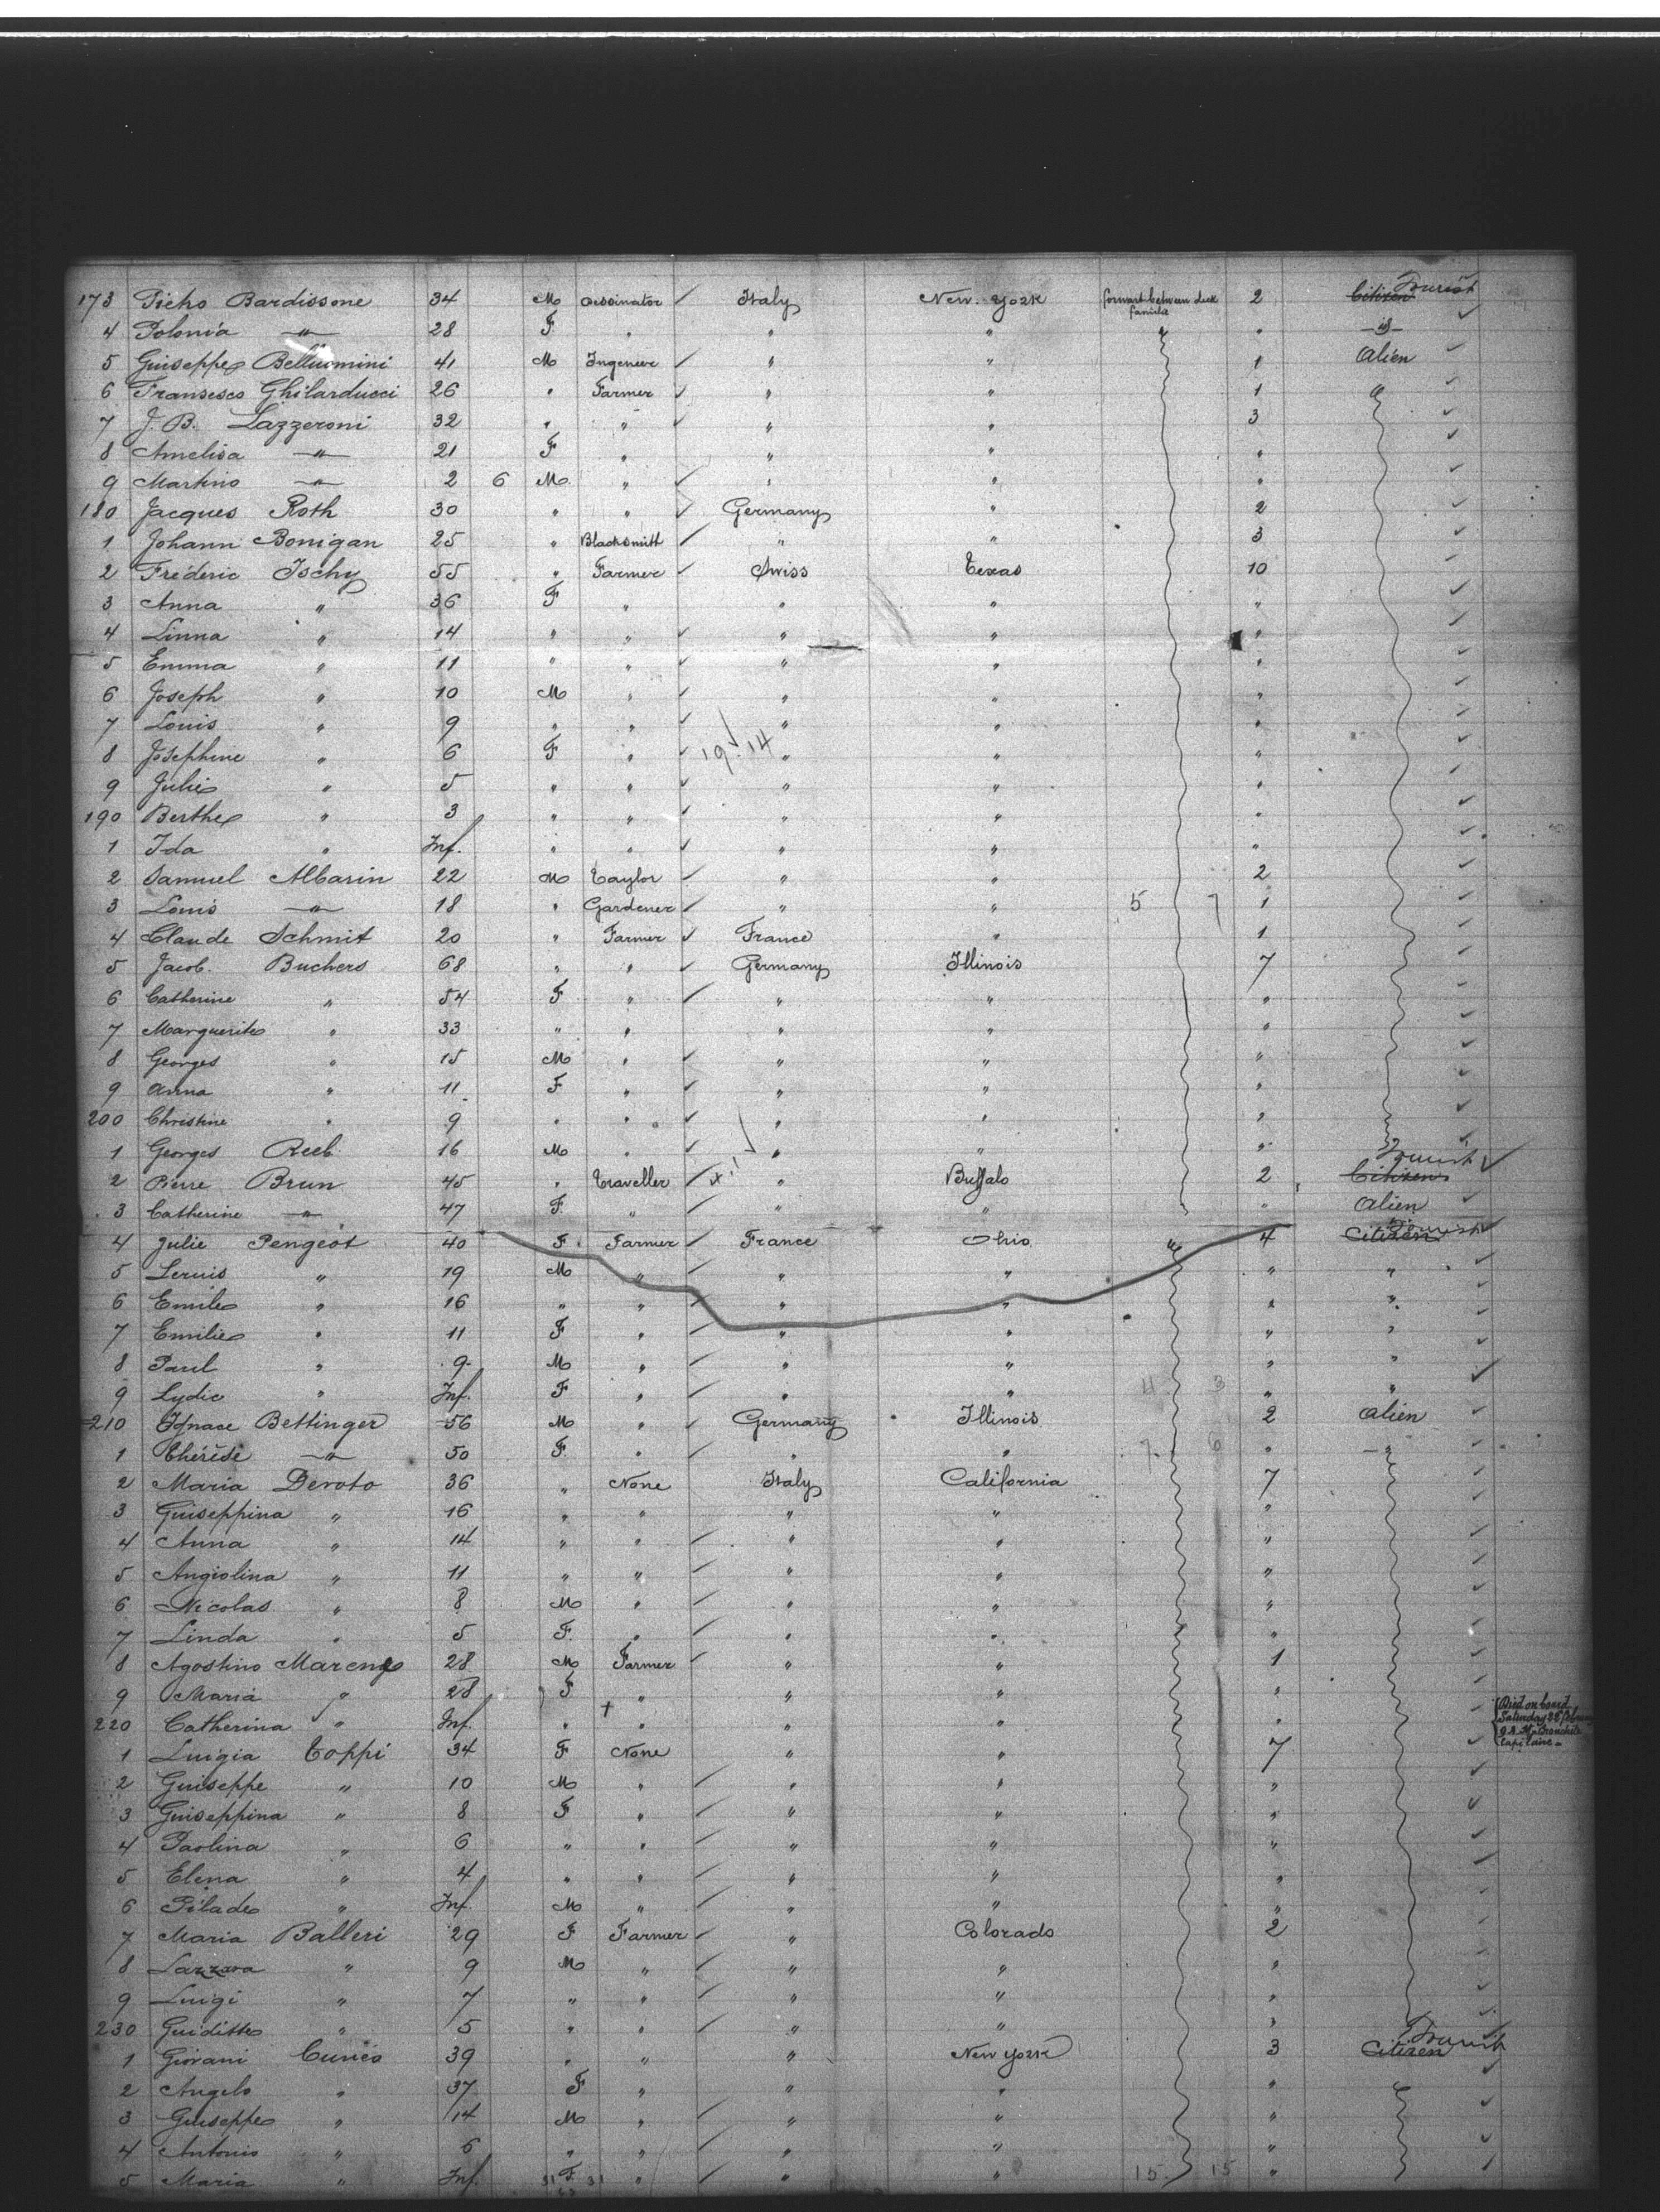 173 Pietro Bardissone 34 M Dessinator Italy New-York forward between deck familie 2 Citizen Tourist
4 Polonia " 28 F " " " " -id-
5 Guiseppe Belluomini 41 M Ingeneer " " 1 Alien
6 Fransesco Ghilarducci 26 " Farmer " " 1
7 J. B. Lazzeroni 32 " " " " 3
8 Amelisa " 21 F " " " "
9 Martino " 2 6 M " " " "
180 Jacques Roth 30 " " Germany " 2
1 Johann Bonigan 25 " Blacksmith " " 3
2 Fréderic Ischy 55 " Farmer Swiss Texas 10
3 Anna " 36 F " " " "
4 Linna " 14 " " " " "
5 Emma " 11 " " " " "
6 Joseph " 10 M " " " "
7 Louis " 9 " " " " "
8 Josephine " 6 F " 19 14 " " "
9 Julie " 5 " " " " "
190 Berthe " 3 " " " " "
1 Ida " Inf. " " " " "
2 Samuel Albarin 22 M Taylor " " 2
3 Louis " 18 " Gardener " " 5 7 1
4 Claude Schmit 20 " Farmer France " 1
5 Jacob. Buchers 68 " " Germany Illinois 7
6 Catherine " 54 F " " " "
7 Marguerite " 33 " " " " "
8 Georges " 15 M " " " "
9 Anna " 11 F " " " "
200 Christine " 9 " " " " "
1 Georges Reeb 16 M " " " "
2 Pierre Brun 45 " Traveller " Buffalo 2 Citizen Tourist
3 Catherine " 47 F " " " " Alien
4 Julie Peugeot 40 F Farmer France Ohio " 4 Citizen Tourist
5 Lewis " 19 M " " " " "
6 Emile " 16 " " " " " "
7 Emilie " 11 F " " " " "
8 Paul " 9 M " " " " "
9 Lydie " Inf. F " " " 4 3 " "
210 Ignace Bettinger 56 M " Germany Illinois 2 Alien
1 Thérèse " 50 F " " " 7 6 " "
2 Maria Devoto 36 " None Italy California 7
3 Guiseppina " 16 " " " " "
4 Anna " 14 " " " " "
5 Angiolina " 11 " " " " "
6 Nicolas " 8 M " " " "
7 Linda " 5 F " " " "
8 Agostino Marengo 28 M Farmer " " 1
9 Maria " 28 F " " " "
220 Catherina " Inf. " + " " " " Died on board Saturday 22 February
1 Luigia Toppi 34 F None " " 7
2 Guiseppe " 10 M " " " "
3 Guiseppina " 8 F " " " "
4 Paolina " 6 " " " " "
5 Elena " 4 " " " " "
6 Pilade " Inf. M " " " "
7 Maria Balleri 29 F Farmer " Colorado 2
8 Lazzara " 9 M " " " "
9 Luigi " 7 " " " " "
230 Guiditte " 5 " " " " "
1 Giovani Cuneo 39 " " " New York 3 Citizen Tourist
2 Angelo " 37 F " " " "
3 Guiseppe " 14 M " " " "
4 Antonio " 6 " " " " "
5 Maria " Inf. 31 F 31 " " " 15 15 "